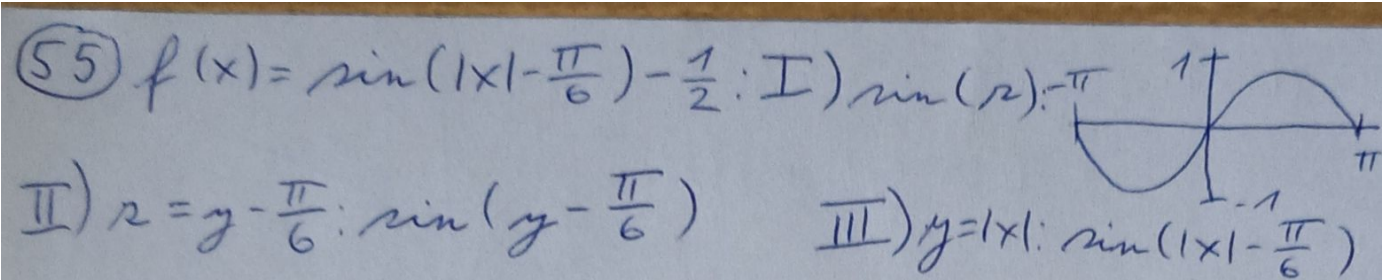 55 f(x) = sin(|x| - π/6) - 1/2 : I) sin(z): -π 1 π -1
II) z = y - π/6 : sin(y - π/6) III) y = |x| : sin(|x| - π/6)